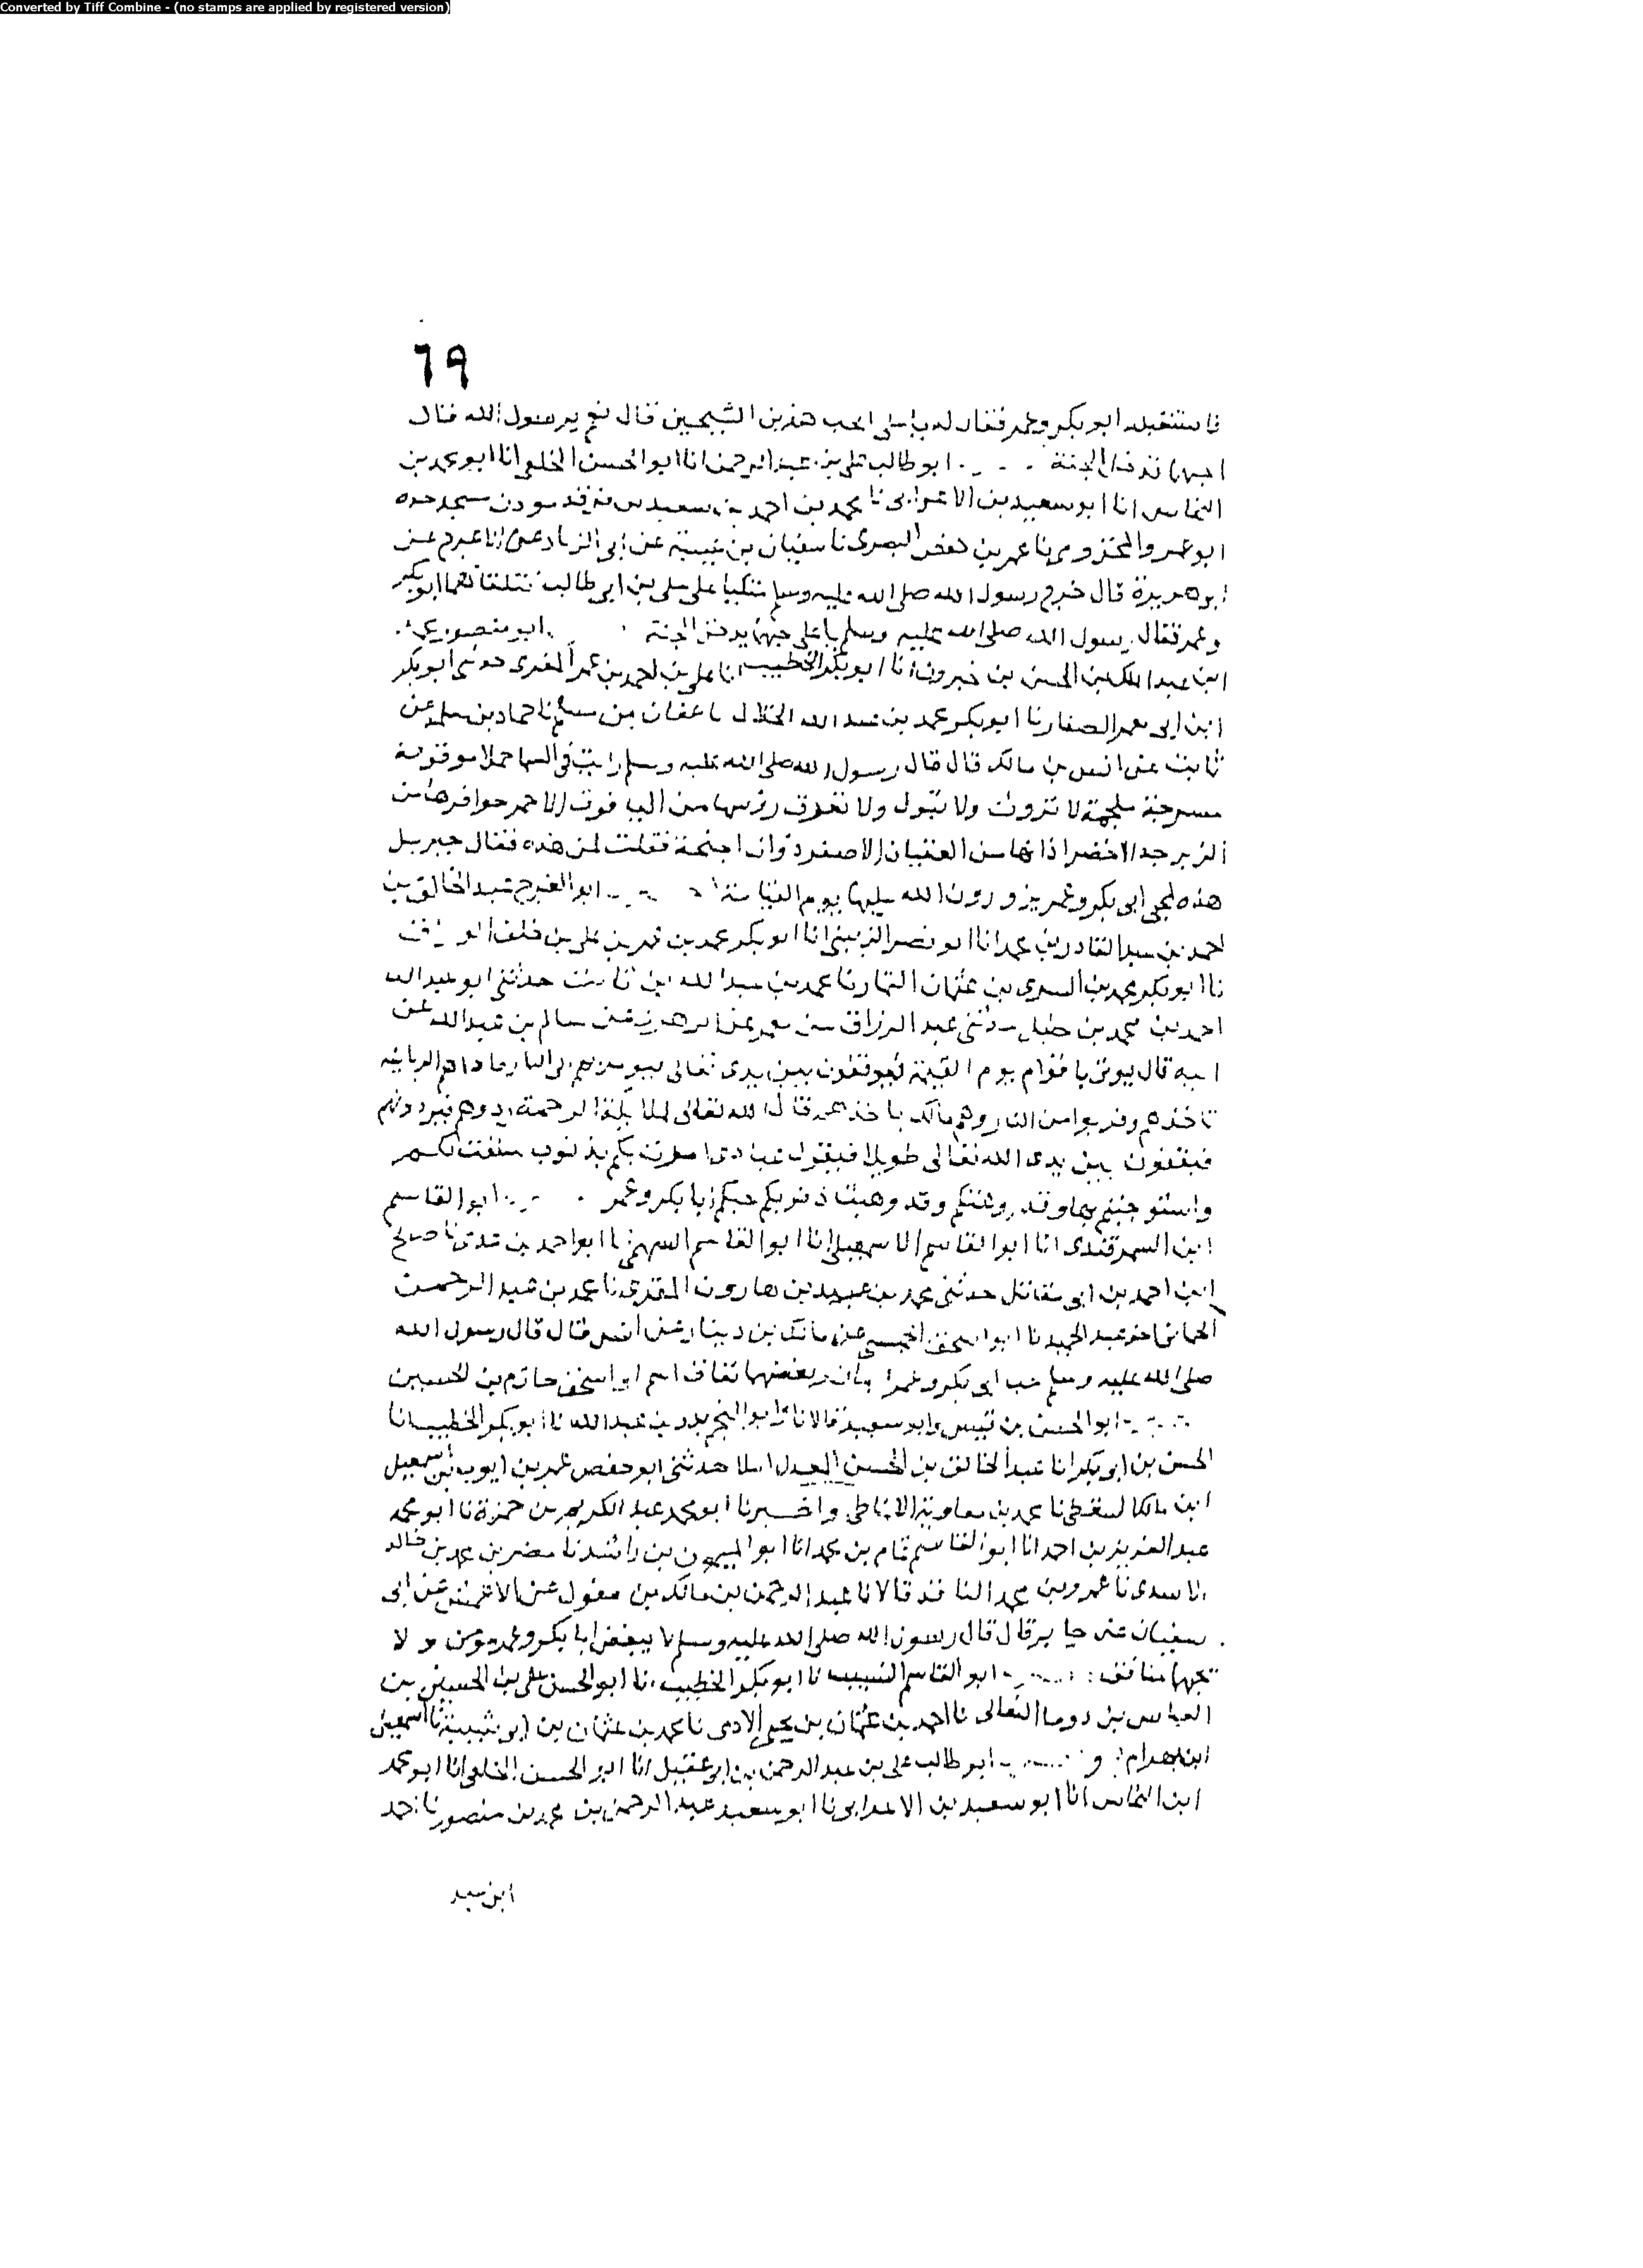 Converted by Tiff Combine - (no stamps are applied by registered version)
٦٩
فاستقبله ابو بكر وعمر فقال له يا على اتحب هذين الشيخين قال نعم يرسول الله فقال
احبهما تدخل الجنة ابو طالب على بن عبد الرحمن انا ابو الحسن الخلعى انا ابو محمد بن
النحاس انا ابو سعيد بن الاعرابى نا محمد بن احمد بن سعيد بن
ابو عمرو المخزومى نا عمر بن حفص البصرى نا سفيان بن عيينة عن ابى الزناد عن الاعرج عن
ابو هريرة قال خرج رسول الله صلى الله عليه وسلم متكيا على على بن ابى طالب فتلقاهما ابو بكر
وعمر فقال رسول الله صلى الله عليه وسلم يا على حبهما يدخل الجنة ابو منصور محمد
ابن عبد الملك بن الحسن بن خيرون انا ابو بكر الخطيب انا على بن احمد بن عمر المقرى حدثنى ابو بكر
ابن ابى معمر الصفار نا ابو بكر محمد بن عبد الله الخلال نا عفان بن مسلم نا حماد بن سلمة عن
ثابت عن انس بن مالك قال قال رسول الله صلى الله عليه وسلم رايت فى السما خيلا موقوفة
مسرجة ملجمة لا تروث ولا تبول ولا تعرق رؤسها من الياقوت الاحمر حوافرها من
الزبرجد الاخضر اذانها من العقيان الاصفر ذوات اجنحة فقلت لمن هذه فقال جبريل
هذه لمحبى ابى بكر وعمر يزورون الله عليها يوم القيامة ابو الفرج عبد الخالق بن
احمد بن عبد القادر بن محمد انا ابو نصر الزينبى انا ابو بكر محمد بن عمر بن على بن خلف الوراق
نا ابو بكر محمد بن السرى بن عثمان التمار نا محمد بن عبد الله بن ثابت حدثنى ابو عبد الله
احمد بن محمد بن حنبل حدثنى عبد الرزاق عن معمر عن الزهرى عن سالم بن عبد الله عن
ابيه قال يوتى باقوام يوم القيمة فيوقفون بين يدى تعالى فيومر بهم الى النار فاذا هم الزبانية
تاخذهم وقربوا من النار وهم مالك ياخذهم قال الله تعالى لملائكة الرحمة ردوهم فيردونهم
فيقفون بين يدى الله تعالى طويلا فيقول عبادى امرت بكم بذنوب سلفت لكم
واستوجبتم بها وقد روعتكم وقد وهبت ذنوبكم حبكم ابا بكر وعمر ابو القاسم
ابن السمرقندى انا ابو القاسم الاسمعيلى انا ابو القاسم السهمى نا ابو احمد بن عدى نا صالح
ابن احمد بن ابى مقاتل حدثنى محمد بن عبيد بن هارون المقرى نا محمد بن عبد الرحمن
الحمانى اخو عبد الحميد نا ابو اسحق الحميسى عن مالك بن دينار عن انس قال قال رسول الله
صلى الله عليه وسلم حب ابى بكر وعمر ايمان وبغضهما نفاق اسم ابو اسحق حازم بن الحسين
ابو الحسن بن قبيس وابو سعيد قالا نا وابو النجم بدر بن عبد الله نا ابو بكر الخطيب انا
الحسن بن ابو بكر انا عبد الخالق بن الحسن المعدل املا حدثنى ابو حفص عمر بن ايوب بن اسمعيل
ابن مالك السقطى نا محمد بن معاوية الانماطى واخبرنا ابو محمد عبد الكريم بن حمزة نا ابو محمد
عبد العزيز بن احمد انا ابو القاسم تمام بن محمد انا ابو الميمون بن راشد نا مضر بن محمد بن خالد
الاسدى نا عمرو بن محمد الناقد قالا نا عبد الرحمن بن مالك بن مغول عن الاعمش عن ابى
سفيان عن جابر قال قال رسول الله صلى الله عليه وسلم لا يبغض ابا بكر وعمر مومن ولا
يحبهما منافق ابو القاسم النسيب نا ابو بكر الخطيب انا ابو الحسن على بن الحسين بن
العباس بن دوما النعالى نا احمد بن عثمان بن يحيى الادمى نا محمد بن عثمان بن ابو شيبة نا اسمعيل
ابن بهرام و ابو طالب على بن عبد الرحمن بن ابو عقيل انا ابو الحسن الخلعى انا ابو محمد
ابن النحاس انا ابو سعيد بن الاعرابى نا ابو سعيد عبد الرحمن بن محمد بن منصور نا احمد
ابن سيد